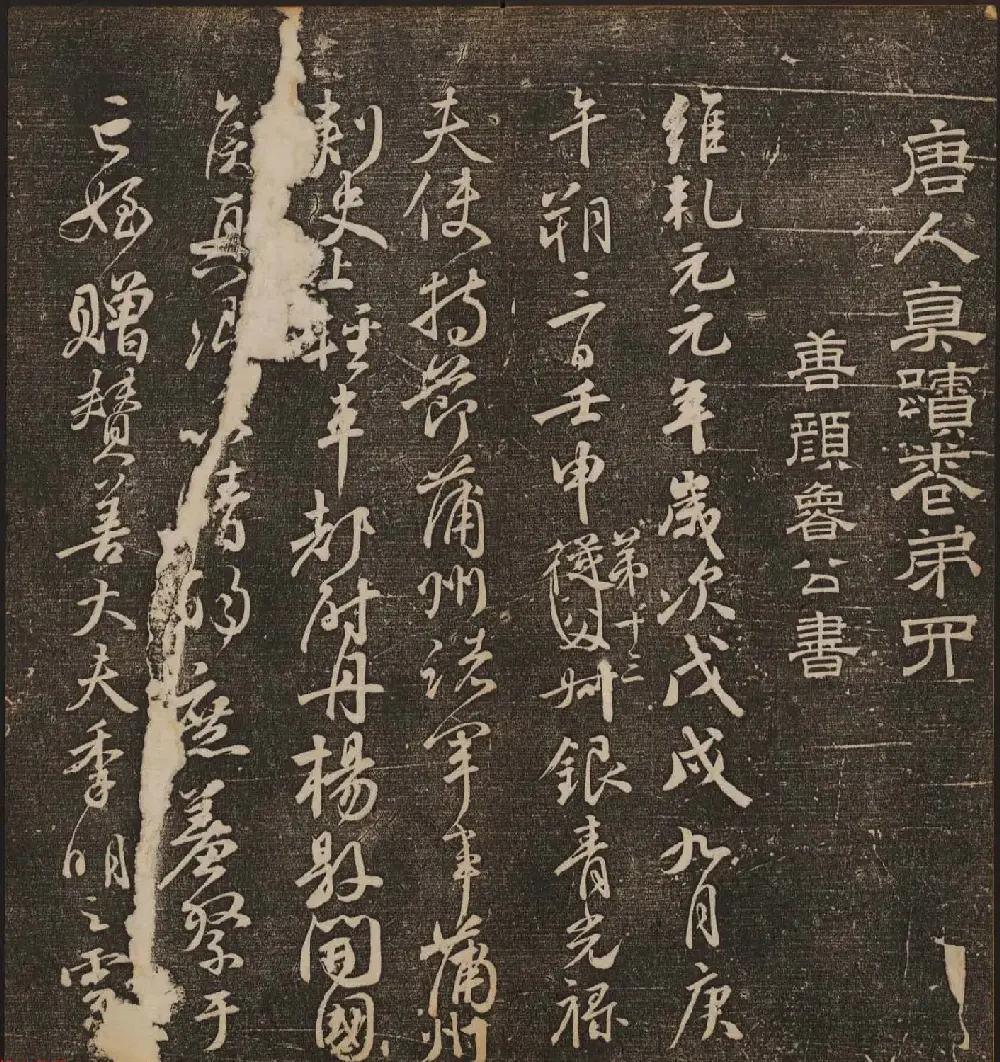 唐人真蹟卷弟四
善顏魯公書
維乾元元年歲次戊戌九月庚
午朔三日壬申第十三從父叔銀青光祿
夫使持節蒲州諸軍事蒲州
刺史上輕車都尉丹楊縣開國
侯真卿以清酌庶羞祭于
亡姪贈贊善大夫季明之靈